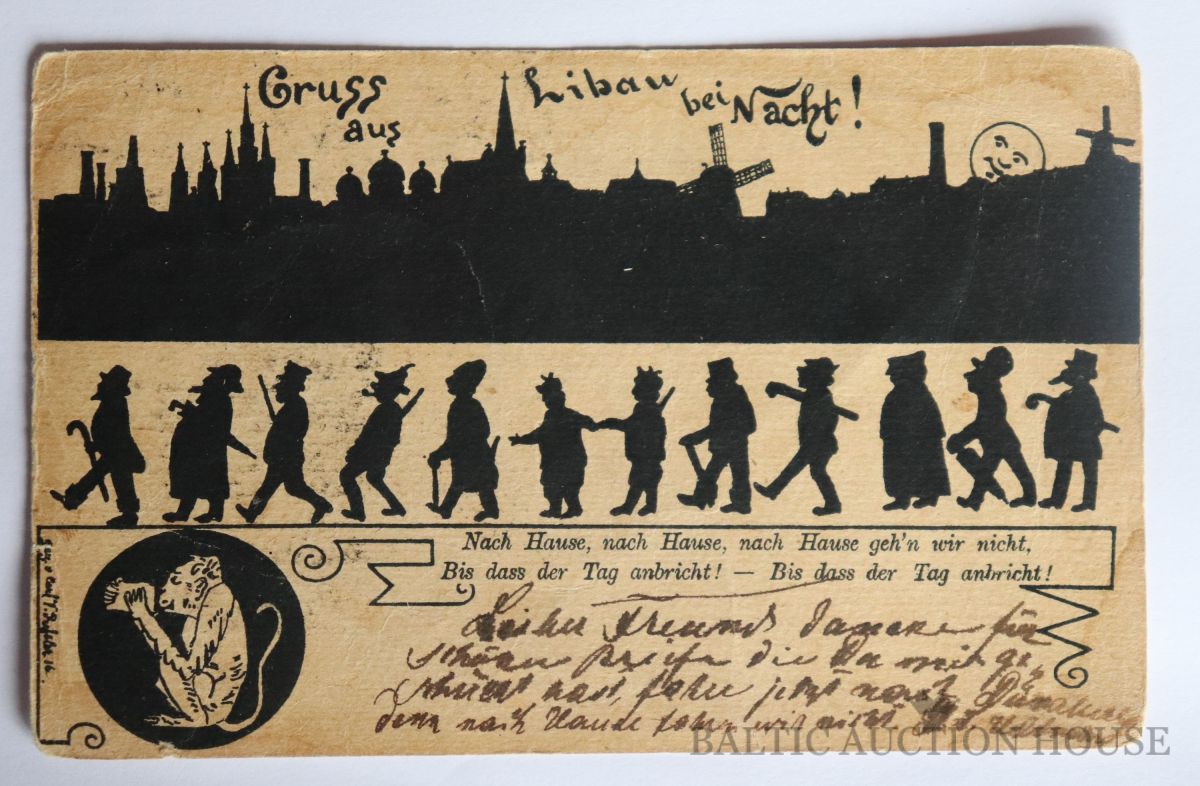 Gruss aus Libau bei Nacht!
Nach Hause, nach Hause, nach Hause geh'n wir nicht,
Bis dass der Tag anbricht! — Bis dass der Tag anbricht!
Lieber Freund dancke für
schöen Preife die Du mir ge-
schückt hast, fahre jetzt nach
denn nach Hause fahren wir nicht
BALTIC AUCTION HOUSE